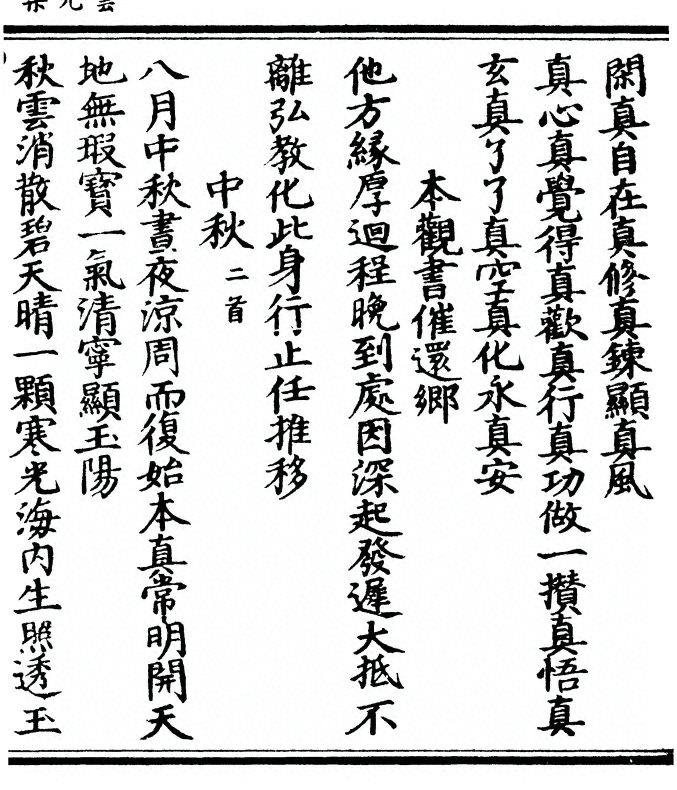 閑真自在真修真鍊顯真風
真心真覺得真歡真行真功做一攢真悟真
玄真了了真空真化永真安
本觀書催還鄉
他方緣厚迴程晚到處因深起發遲大抵不
離弘教化此身行止任推移
中秋二首
八月中秋晝夜涼周而復始本真常明開天
地無瑕寶一氣清寧顯玉陽
秋雲消散碧天晴一顆寒光海內生照透玉